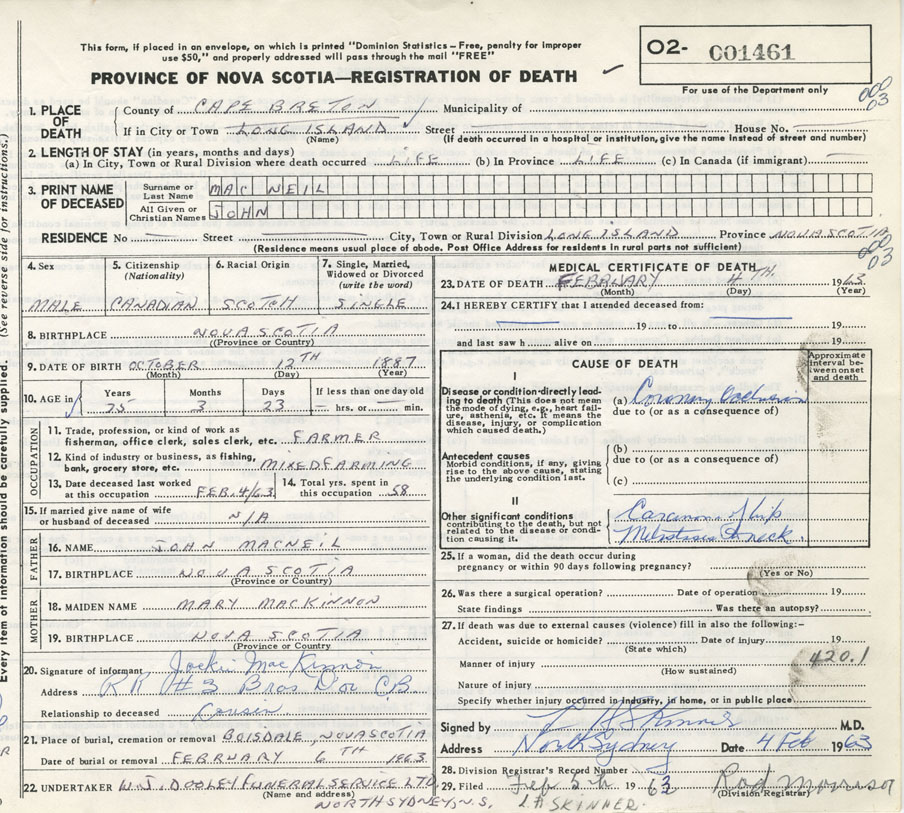 This form, if placed in an envelope, on which is printed "Dominion Statistics - Free, penalty for improper
use $50," and properly addressed will pass through the mail "FREE"
PROVINCE OF NOVA SCOTIA—REGISTRATION OF DEATH
O2- 001461
For use of the Department only
000
03
1. PLACE OF DEATH
County of CAPE BRETON Municipality of
If in City or Town LONG ISLAND Street House No.
(Name) (If death occurred in a hospital or institution, give the name instead of street and number)
2. LENGTH OF STAY (in years, months and days)
(a) In City, Town or Rural Division where death occurred LIFE (b) In Province LIFE (c) In Canada (if immigrant)
3. PRINT NAME OF DECEASED
Surname or Last Name MAC NEIL
All Given or Christian Names JOHN
RESIDENCE No Street City, Town or Rural Division LONG ISLAND Province NOVA SCOTIA
(Residence means usual place of abode. Post Office Address for residents in rural parts not sufficient)
000
03
4. Sex MALE
5. Citizenship (Nationality) CANADIAN
6. Racial Origin SCOTCH
7. Single, Married, Widowed or Divorced (write the word) SINGLE
8. BIRTHPLACE NOVA SCOTIA
(Province or Country)
9. DATE OF BIRTH OCTOBER 12TH 1887
(Month) (Day) (Year)
10. AGE in Years 75 Months 3 Days 23 If less than one day old hrs. or min.
OCCUPATION
11. Trade, profession, or kind of work as
fisherman, office clerk, sales clerk, etc. FARMER
12. Kind of industry or business, as fishing,
bank, grocery store, etc. MIXED FARMING
13. Date deceased last worked
at this occupation FEB. 4/63
14. Total yrs. spent in
this occupation 58
15. If married give name of wife
or husband of deceased N/A
FATHER
16. NAME JOHN MACNEIL
17. BIRTHPLACE NOVA SCOTIA
(Province or Country)
MOTHER
18. MAIDEN NAME MARY MACKINNON
19. BIRTHPLACE NOVA SCOTIA
(Province or Country)
20. Signature of informant Jackie MacKinnon
Address RR #3 Bras D'or C.B
Relationship to deceased Cousin
21. Place of burial, cremation or removal BOISDALE, NOVA SCOTIA
Date of burial or removal FEBRUARY 6TH 1963
22. UNDERTAKER W.J. DOOLEY FUNERAL SERVICE LTD
(Name and address)
NORTH SYDNEY, N.S.
MEDICAL CERTIFICATE OF DEATH
23. DATE OF DEATH FEBRUARY 4TH. 1963
(Month) (Day) (Year)
24. I HEREBY CERTIFY that I attended deceased from:
19 to 19
and last saw h alive on 19
CAUSE OF DEATH
Approximate interval between onset and death
I
Disease or condition directly leading
to death (This does not mean
the mode of dying, e.g., heart failure,
asthenia, etc. It means the
disease, injury, or complication
which caused death.)
(a) Coronary Occlusion
due to (or as a consequence of)
Antecedent causes
Morbid conditions, if any, giving
rise to the above cause, stating
the underlying condition last.
(b)
due to (or as a consequence of)
(c)
II
Other significant conditions
contributing to the death, but not
related to the disease or condition
causing it.
Carcinoma of lip
Metastases to neck
25. If a woman, did the death occur during
pregnancy or within 90 days following pregnancy?
(Yes or No)
26. Was there a surgical operation? Date of operation 19
State findings Was there an autopsy?
27. If death was due to external causes (violence) fill in also the following:-
Accident, suicide or homicide? Date of injury 19
(State which)
Manner of injury 420.1
(How sustained)
Nature of injury
Specify whether injury occurred in industry, in home, or in public place
Signed by L A Skinner M.D.
Address North Sydney Date 4 Feb 1963
28. Division Registrar's Record Number
29. Filed Feb 5th 1963 Rod Morrison
(Division Registrar)
L A SKINNER.
Every item of information should be carefully supplied. (See reverse side for instructions.)